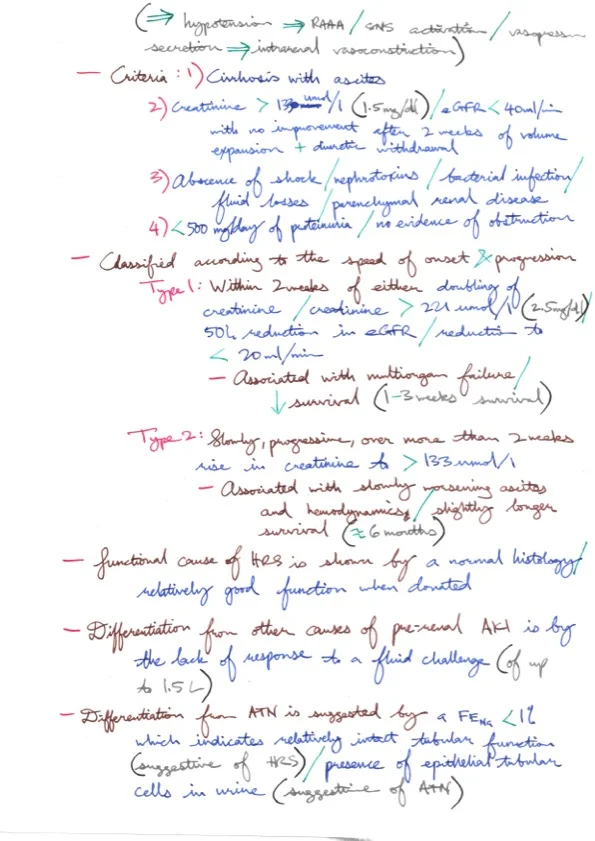 (⇒ hypotension ⇒ RAAA / SNS activation / vasopressin
secretion ⇒ intrarenal vasoconstriction)
— Criteria : 1) Cirrhosis with ascites
2) Creatinine > 133 umol/l (1.5mg/dl) / eGFR < 40ml/min
with no improvement after 2 weeks of volume
expansion + diuretic withdrawal
3) Abscence of shock / nephrotoxins / bacterial infection /
fluid losses / parenchymal renal disease
4) < 500 mg/day of proteinuria / no evidence of obstruction
— Classified according to the speed of onset & progression
Type 1 : Within 2 weeks of either doubling of
creatinine / creatinine > 221 umol/l (2.5mg/dl) /
50% reduction in eGFR / reduction to
< 20 ml/min
— Associated with multiorgan failure /
↓ survival (1-3 weeks survival)
Type 2 : Slowly, progressive, over more than 2 weeks
rise in creatinine to > 133 umol/l
— Associated with slowly worsening ascites
and hemodynamics / slightly longer
survival (≈ 6 months)
— functional cause of HRS is shown by a normal histology /
relatively good function when donated
— Differentiation from other causes of pre-renal AKI is by
the lack of response to a fluid challenge (of up
to 1.5 L)
— Differentiation from ATN is suggested by a FENa < 1%
which indicates relatively intact tubular function
(suggestive of HRS) / presence of epithelial tubular
cells in urine (suggestive of ATN)